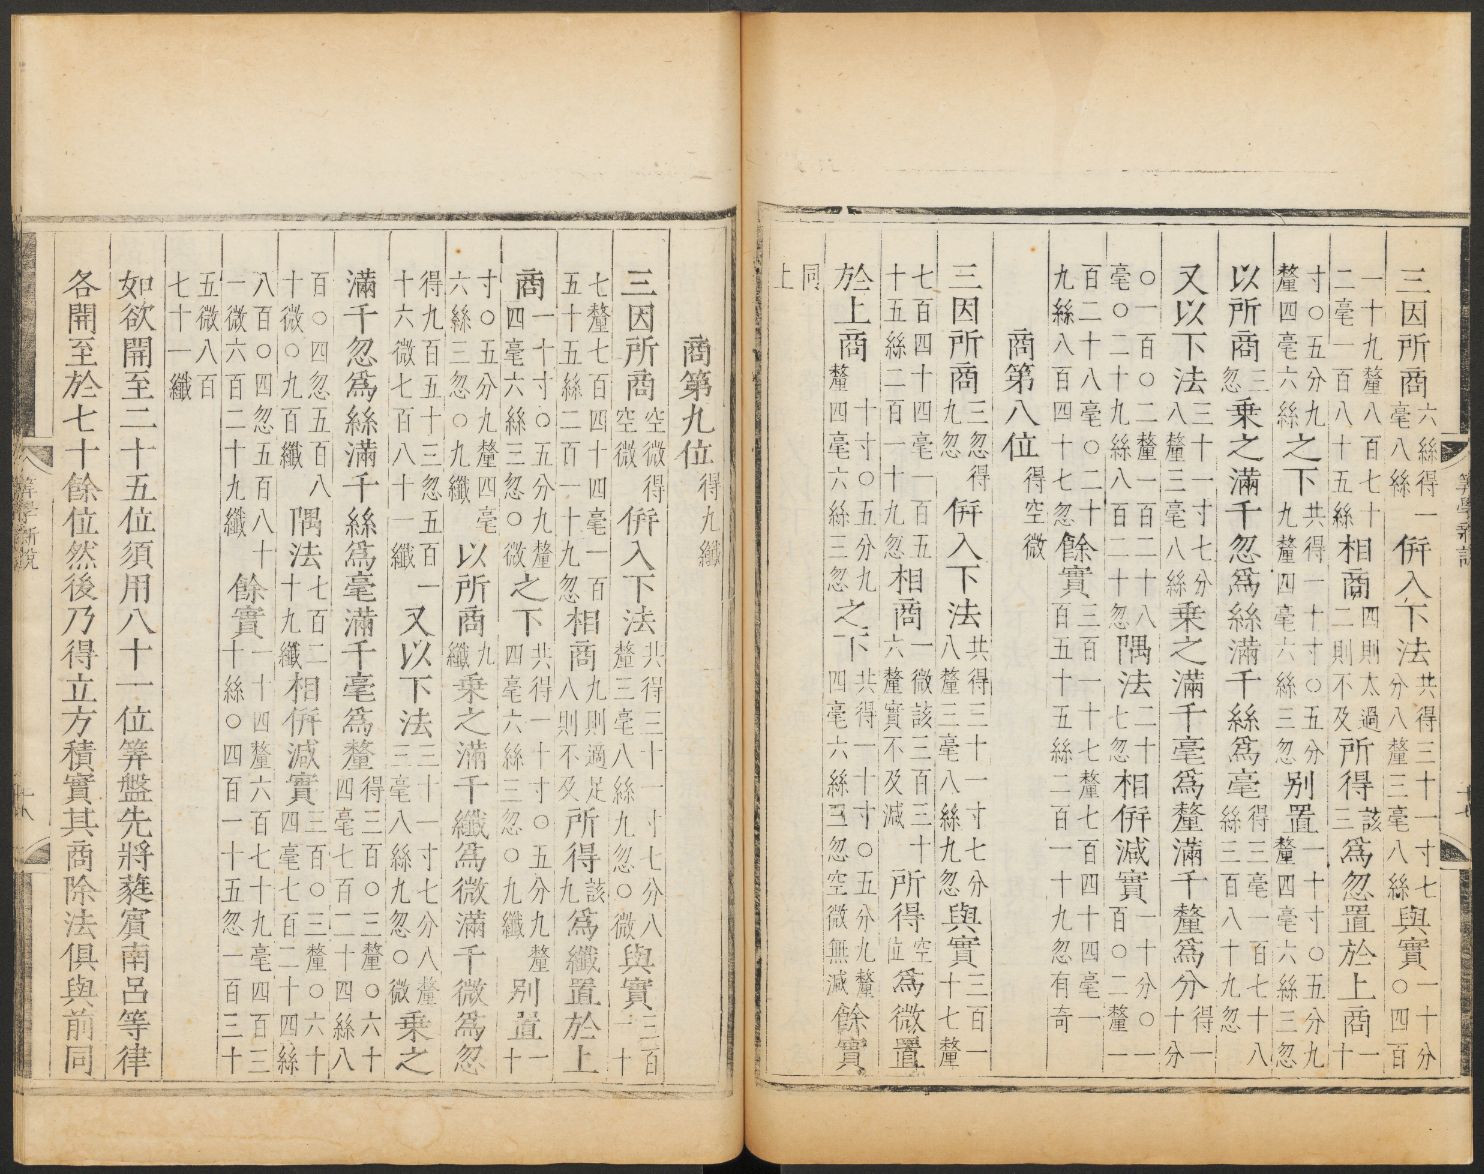 三因所商六絲得一毫八絲併入下法共得三十一寸七分八釐三毫八絲與實一十分〇四百
一十九釐八百七十二毫一百八十五絲相商四則太過二則不及所得該三爲忽置於上商一十
寸〇五分九釐四毫六絲之下共得一十寸〇五分九釐四毫六絲三忽別置一十寸〇五分九釐四毫六絲三忽
以所商三忽乘之滿千忽爲絲滿千絲爲毫得三毫一百七十八絲三百八十九忽
又以下法三十一寸七分八釐三毫八絲乘之滿千毫爲釐滿千釐爲分得一十分
〇一百〇二釐一百二十八毫〇二十九絲八百二十忽隅法二十七忽相併減實一十分〇一百〇二釐一
百二十八毫〇二十九絲八百四十七忽餘實三百一十七釐七百四十四毫一百五十五絲二百一十九忽有奇
商第八位得空微
三因所商三忽得九忽併入下法共得三十一寸七分八釐三毫八絲九忽與實三百一十七釐
七百四十四毫一百五十五絲二百一十九忽相商一微該三百三十六釐實不及減所得空位爲微置
於上商十寸〇五分九釐四毫六絲三忽之下共得一十寸〇五分九釐四毫六絲三忽空微無減餘實
同上
商第九位得九纖
三因所商空微得空微併入下法共得三十一寸七分八釐三毫八絲九忽〇微與實三百一十
七釐七百四十四毫一百五十五絲二百一十九忽相商九則適足八則不及所得該九爲纖置於上
商一十寸〇五分九釐四毫六絲三忽〇微之下共得一十寸〇五分九釐四毫六絲三忽〇九纖別置一十
寸〇五分九釐四毫六絲三忽〇九纖以所商九纖乘之滿千纖爲微滿千微爲忽
得九百五十三忽五百一十六微七百八十一纖又以下法三十一寸七分八釐三毫八絲九忽〇微乘之
滿千忽爲絲滿千絲爲毫滿千毫爲釐得三百〇三釐〇六十四毫七百二十四絲八
百〇四忽五百八十微〇九百纖隅法七百二十九纖相併減實三百〇三釐〇六十四毫七百二十四絲
八百〇四忽五百八十一微六百二十九纖餘實一十四釐六百七十九毫四百三十絲〇四百一十五忽一百三十
五微八百七十一纖
如欲開至二十五位須用八十一位筭盤先將蕤賓南呂等律
各開至於七十餘位然後乃得立方積實其商除法俱與前同
筭學新說
十八